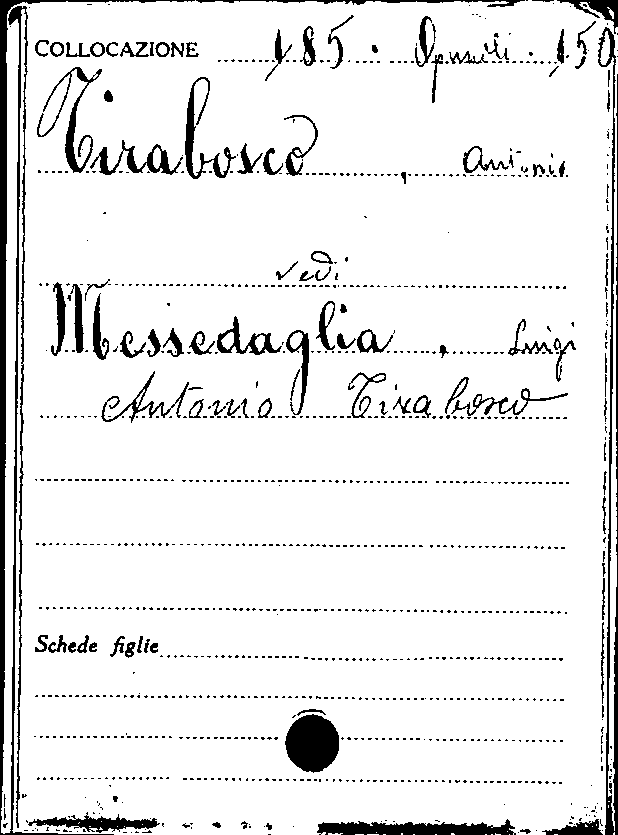 COLLOCAZIONE 185. Opuscoli. 150
Tirabosco, Antonio
vedi
Messedaglia, Luigi
Antonio Tirabosco
Schede figlie